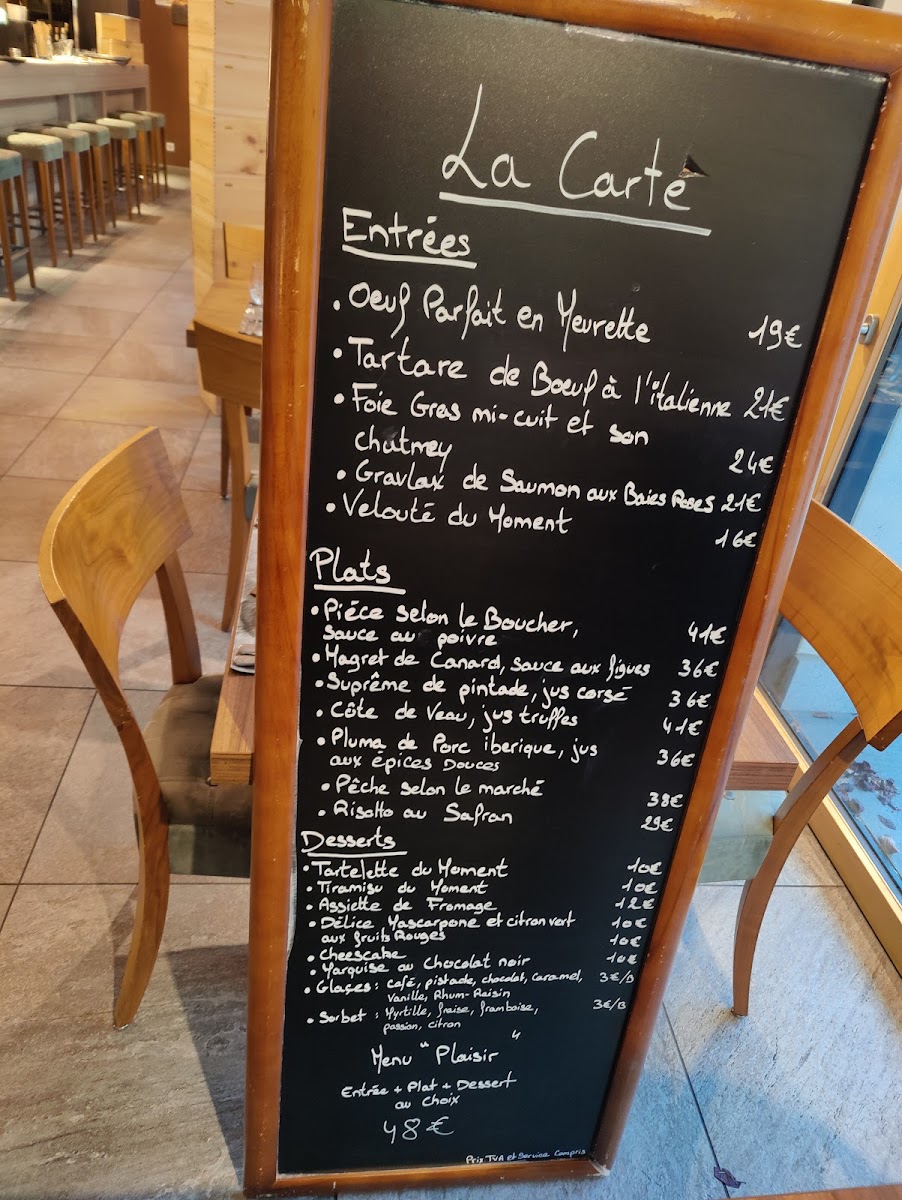 La Carte
Entrées
• Oeuf Parfait en Meurette 19€
• Tartare de Boeuf à l'italienne 21€
• Foie Gras mi-cuit et son
chutney 24€
• Gravlax de Saumon aux Baies Roses 21€
• Velouté du Moment 16€
Plats
• Piéce selon le Boucher,
sauce au poivre 41€
• Magret de Canard, sauce aux figues 36€
• Suprême de pintade, jus corsé 36€
• Côte de Veau, jus truffes 41€
• Pluma de Porc iberique, jus
aux épices Douces 36€
• Pêche selon le marché 38€
• Risotto au Safran 29€
Desserts
• Tartelette du Moment 10€
• Tiramisu du Moment 10€
• Assiette de Fromage 12€
• Délice Mascarpone et citron vert 10€
aux fruits Rouges
• Cheescake 10€
• Marquise au Chocolat noir 10€
• Glaçes : café, pistache, chocolat, Caramel, 3€/B
Vanille, Rhum-Raisin
• Sorbet : Myrtille, fraise, framboise, 3€/B
passion, citron
Menu "Plaisir"
Entrée + Plat + Dessert
au choix
48€
Prix TVA et Service Compris